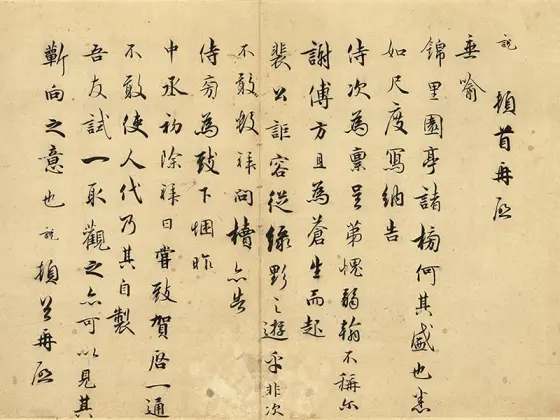 説頓首再啓
垂喻
錦里園亭諸榜何其盛也悉
如尺度寫納告
侍次為禀呈第愧弱翰不稱尔
謝傅方且為蒼生而起
裴公詎容從緑野之遊乎非次
不敢數拜問櫝亦告
侍旁為致下悃昨
中丞初除拜日嘗致賀啓一通
不敢使人代乃其自製
吾友試一取觀之亦可以見其
蘄向之意也説頓首再啓